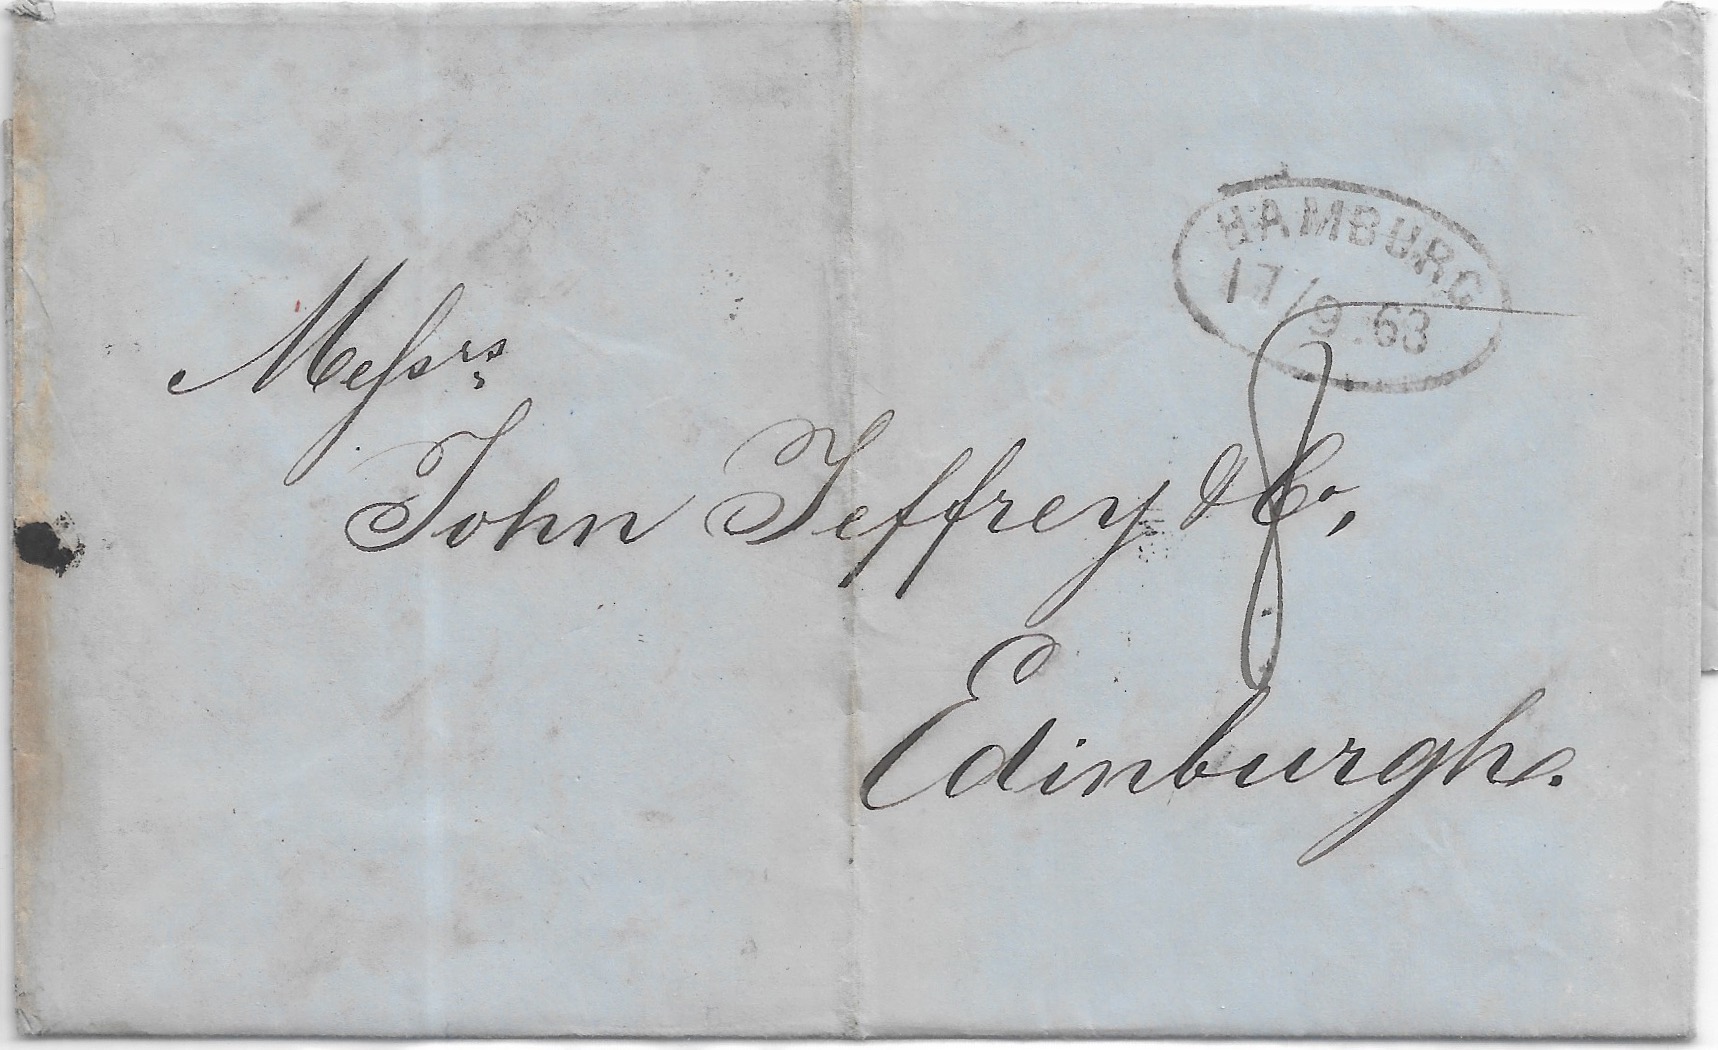 HAMBURG
17/9.63
Messrs
John Jeffrey & Co,
Edinburgh.